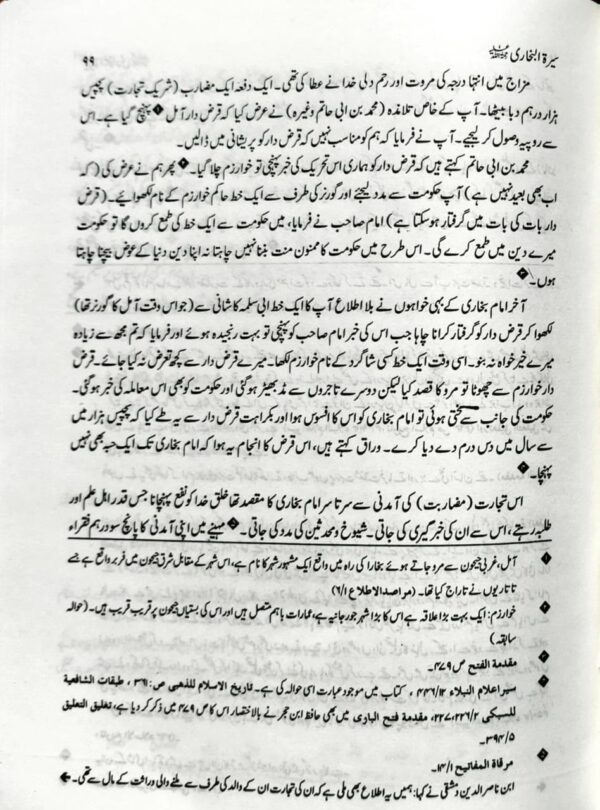 سیرۃ البخاری رحمۃ اللہ علیہ ۹۹
مزاج میں انتہا درجہ کی مروت اور رحم دلی خدا نے عطا کی تھی۔ ایک دفعہ ایک مضارب (شریک تجارت) پچیس
ہزار درہم دبا بیٹھا۔ آپ کے خاص تلامذہ (محمد بن ابی حاتم وغیرہ) نے عرض کیا کہ قرض دار آمل پہنچ گیا ہے۔ اس
سے روپیہ وصول کر لیجیے۔ آپ نے فرمایا کہ ہم کو مناسب نہیں کہ قرض دار کو پریشانی میں ڈالیں۔
محمد بن ابی حاتم کہتے ہیں کہ قرض دار کو ہماری اس تحریک کی خبر پہنچی تو خوارزم چلا گیا۔ پھر ہم نے عرض کی (کہ
اب بھی بعید نہیں ہے) آپ حکومت سے مدد لیجئے اور گورنر کی طرف سے ایک خط حاکم خوارزم کے نام لکھوائیے۔ (قرض
دار بات کی بات میں گرفتار ہو سکتا ہے) امام صاحب نے فرمایا، میں حکومت سے ایک خط کی طمع کروں گا تو حکومت
میرے دین میں طمع کرے گی۔ اس طرح میں حکومت کا ممنون منت بننا نہیں چاہتا نہ اپنا دین دنیا کے عوض بیچنا چاہتا
ہوں۔
آخر امام بخاری کے بہی خواہوں نے بلا اطلاع آپ کا ایک خط ابی سلمہ کاشانی سے (جو اس وقت آمل کا گورنر تھا)
لکھوا کر قرض دار کو گرفتار کرانا چاہا جب اس کی خبر امام صاحب کو پہنچی تو بہت رنجیدہ ہوئے اور فرمایا کہ تم مجھ سے زیادہ
میرے خیر خواہ نہ بنو۔ اسی وقت ایک خط کسی شاگرد کے نام خوارزم لکھا۔ میرے قرض دار سے کچھ تعرض نہ کیا جائے۔ قرض
دار خوارزم سے چھوٹا تو مرو کا قصد کیا لیکن دوسرے تاجروں سے مڈبھیڑ ہو گئی اور حکومت کو بھی اس معاملہ کی خبر ہو گئی۔
حکومت کی جانب سے سختی ہوئی تو امام بخاری کو اس کا افسوس ہوا اور بکراہت قرض دار سے یہ طے کیا کہ پچیس ہزار میں
سے سال میں دس درم دے دیا کرے۔ وراق کہتے ہیں، اس قرض کا انجام یہ ہوا کہ امام بخاری تک ایک حبہ بھی نہیں
پہنچا۔
اس تجارت (مضاربت) کی آمدنی سے سرتاسر امام بخاری کا مقصد تھا خلق خدا کو نفع پہنچانا جس قدر اہل علم اور
طلبہ رہتے، اس سے ان کی خبر گیری کی جاتی۔ شیوخ و محدثین کی مدد کی جاتی۔ مہینے میں اپنی آمدنی کا پانچ سو درہم فقراء
آمل، غربی جیحون سے مرو جاتے ہوئے بخارا کی راہ میں واقع ایک مشہور شہر کا نام ہے، اس شہر کے مقابل شرق جیحون میں فربر واقع ہے جسے
تاتاریوں نے تاراج کیا تھا۔ (مراصد الاطلاع ۶/۱)
خوارزم: ایک بہت بڑا علاقہ ہے اس کا بڑا شہر جورجانیہ ہے، عمارات باہم متصل ہیں اور اس کی بستیاں جیحون پر قریب قریب ہیں۔ (حوالہ
سابقہ)
مقدمة الفتح ص ۴۷۹۔
سیر اعلام النبلاء ۴۴۶/۱۲، کتاب میں موجود عبارت اسی حوالہ کی ہے۔ تاریخ الاسلام للذهبی ص: ۲۶۱، طبقات الشافعیة
للسبکی ۲۲۷،۲۲۶/۲، مقدمة فتح الباری میں بھی حافظ ابن حجر نے بالاختصار اس کا ص ۴۷۹ میں ذکر کر دیا ہے، تغلیق التعلیق
۳۹۴/۵۔
مرقاة المفاتیح ۱۴/۱۔
ابن ناصر الدین دمشقی نے کہا: ہمیں یہ اطلاع بھی ملی ہے کہ ان کی تجارت ان کے والد کی طرف سے ملنے والی وراثت کے مال سے تھی۔